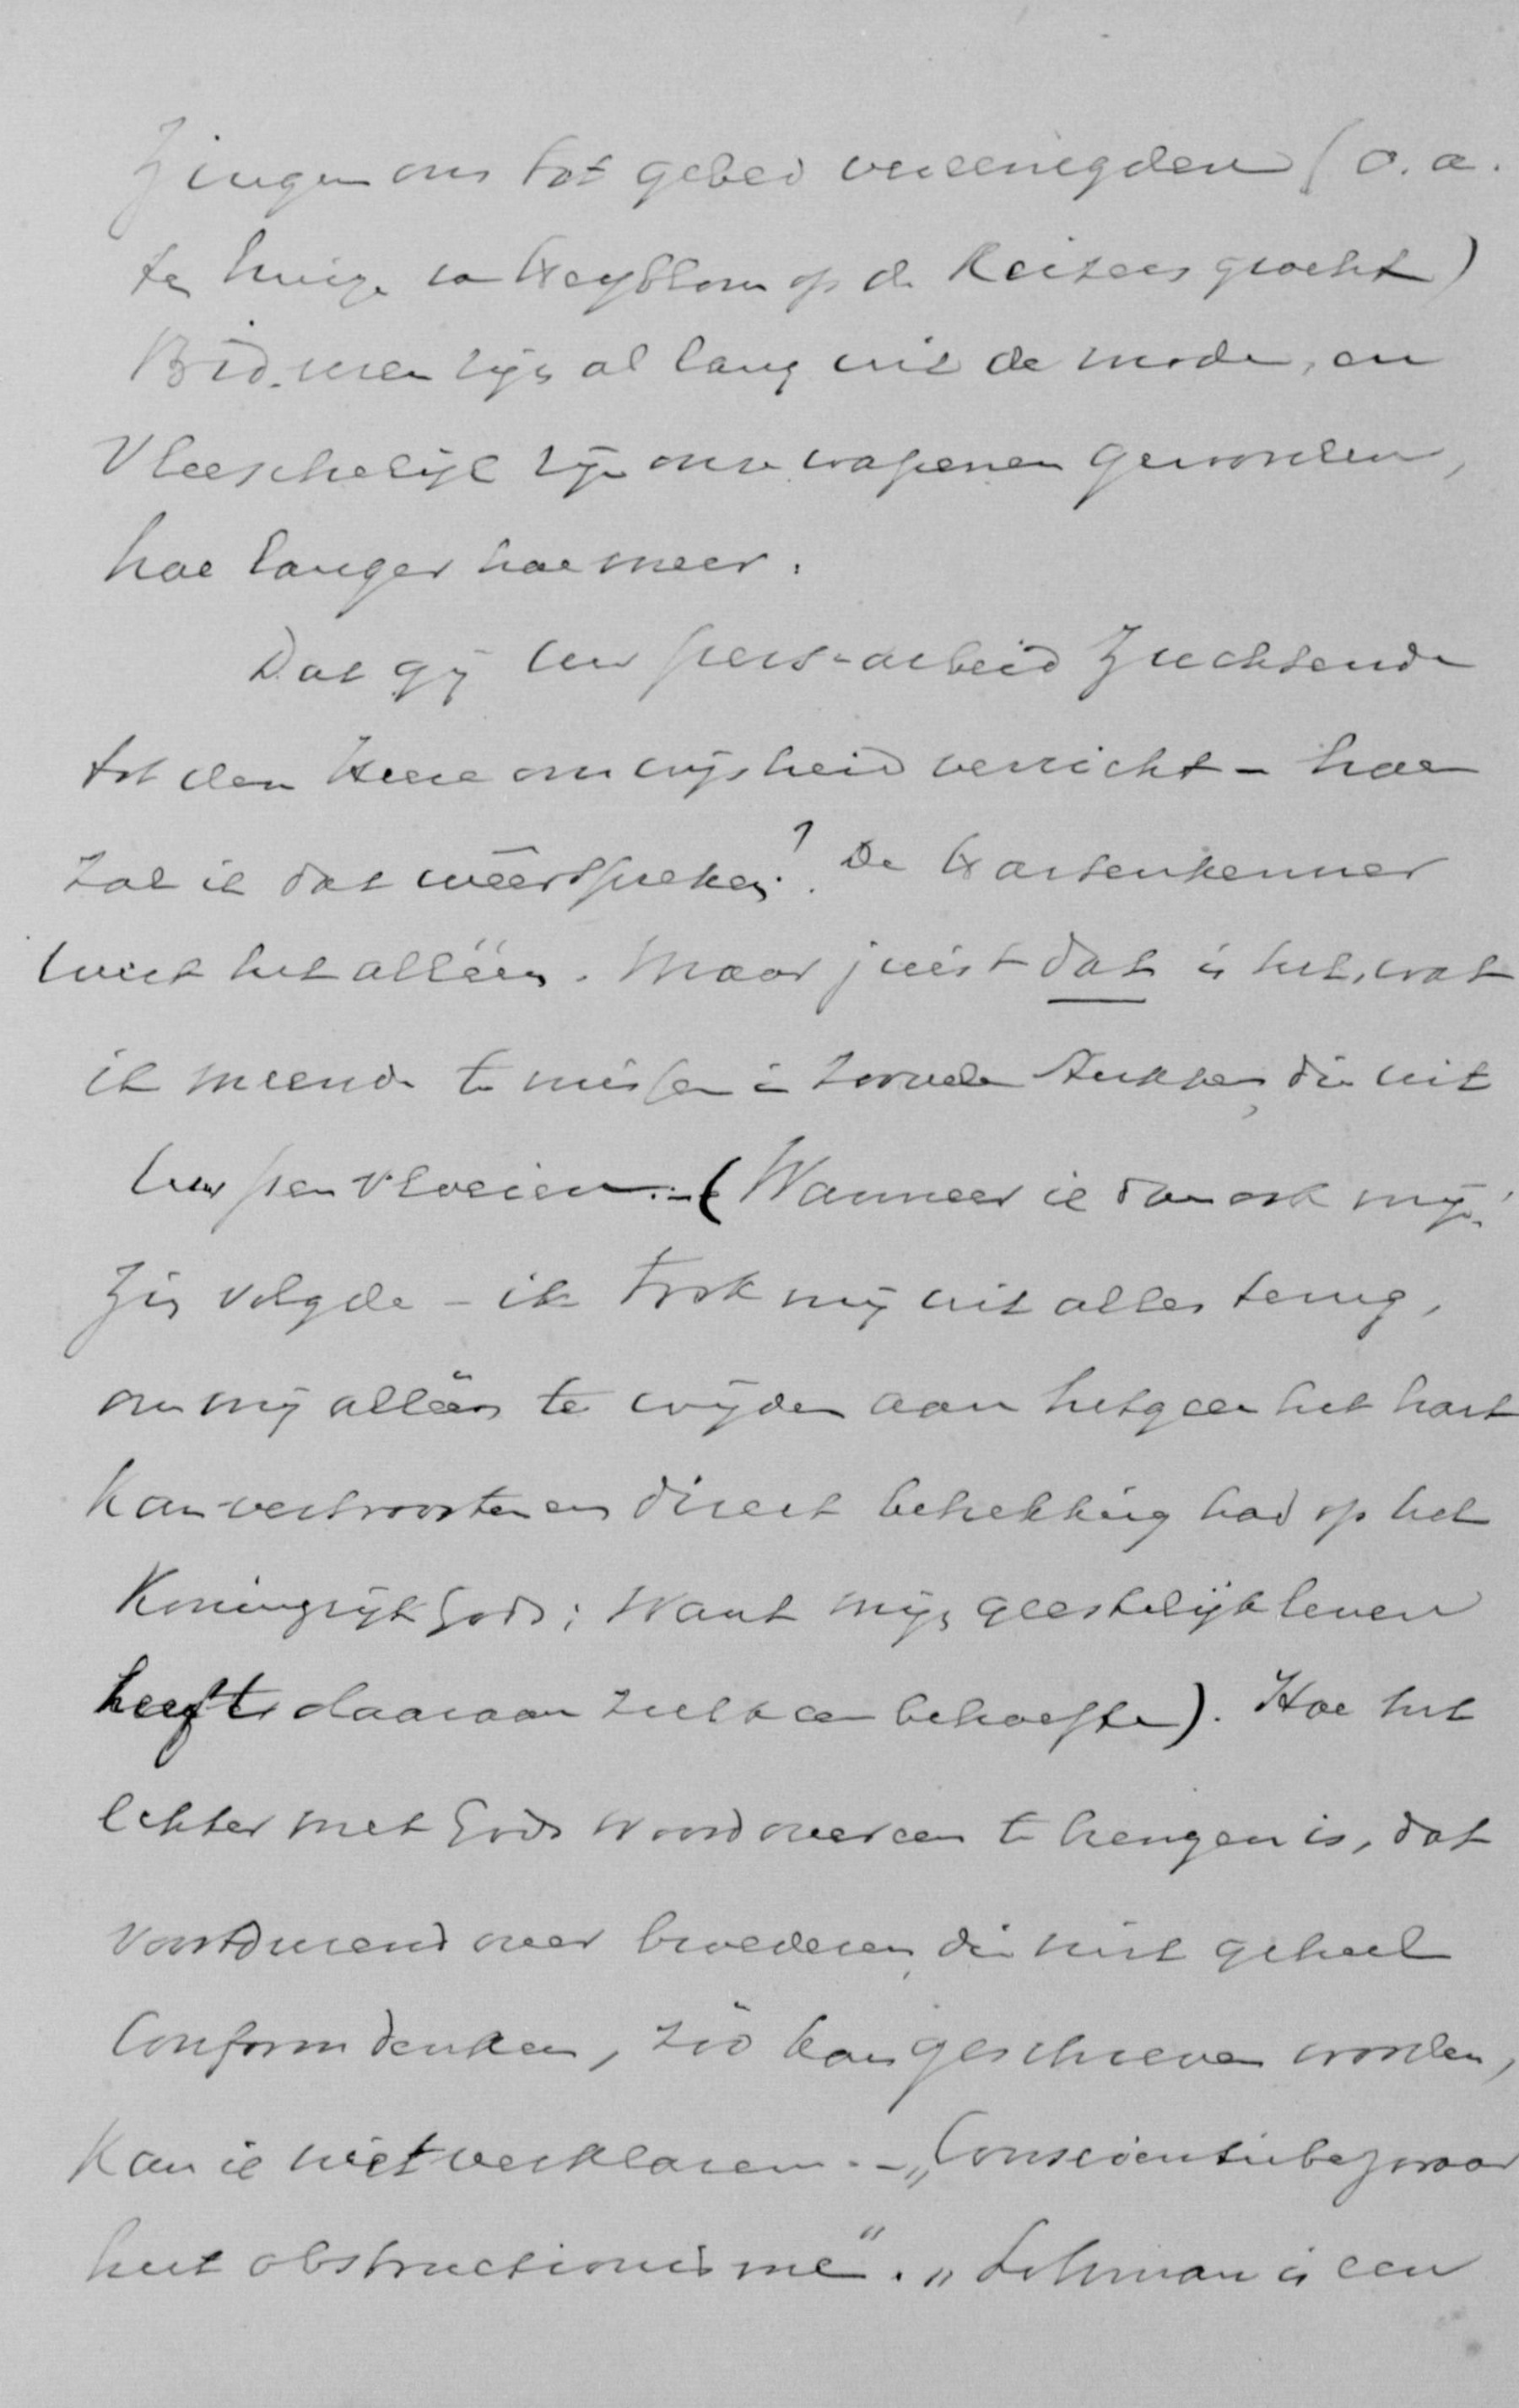 gingen ons tot gebed vereenigden (o.a.
ten huize van Heyblom op de Keizersgracht)
Biduren zijn al lang uit de mode, en
Vleeschelijk zijn onze wapenen geworden,
hoe langer hoe meer.
Dat gij Uw pers-arbeid zuchtende
tot den Heere om wijsheid verricht - hoe
zal ik dat wéérspreken? De Hartenkenner
weet het alléén. Maar juist dat is het, wat
ik meende te missen in zoovele stukken, die uit
Uw pen vloeien. - (Wanneer ik dan ook mijn
zin volgde - ik trok mij uit alles terug,
om mij alléén te wijden aan hetgeen het hart
kan vertroosten en direct betrekking had op het
Koningrijk Gods; Want mijn geestelijk leven
heeft daaraan zulk een behoefte). Hoe het
echter met Gods Woord overeen te brengen is, dat
voortdurend over broederen, die niet geheel
conform denken, zóó kan geschreven worden,
kan ik niet verklaren. - „Conscientiebezwaar
het obstructionisme". „Lohman is een